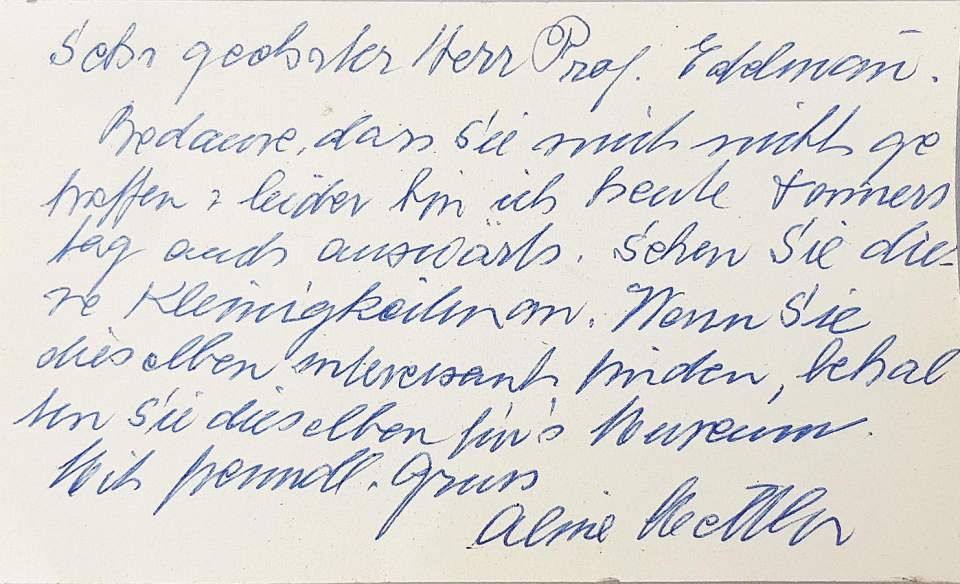 Sehr geehrter Herr Prof. Edelmann.
Bedaure, dass Sie mich nicht ge
troffen, leider bin ich heute Donners
tag auch auswärts. Sehen Sie die-
se Kleinigkeiten an. Wenn Sie
dieselben interessant finden, behal
ten Sie dieselben für's Museum.
Mit freundl. Gruss